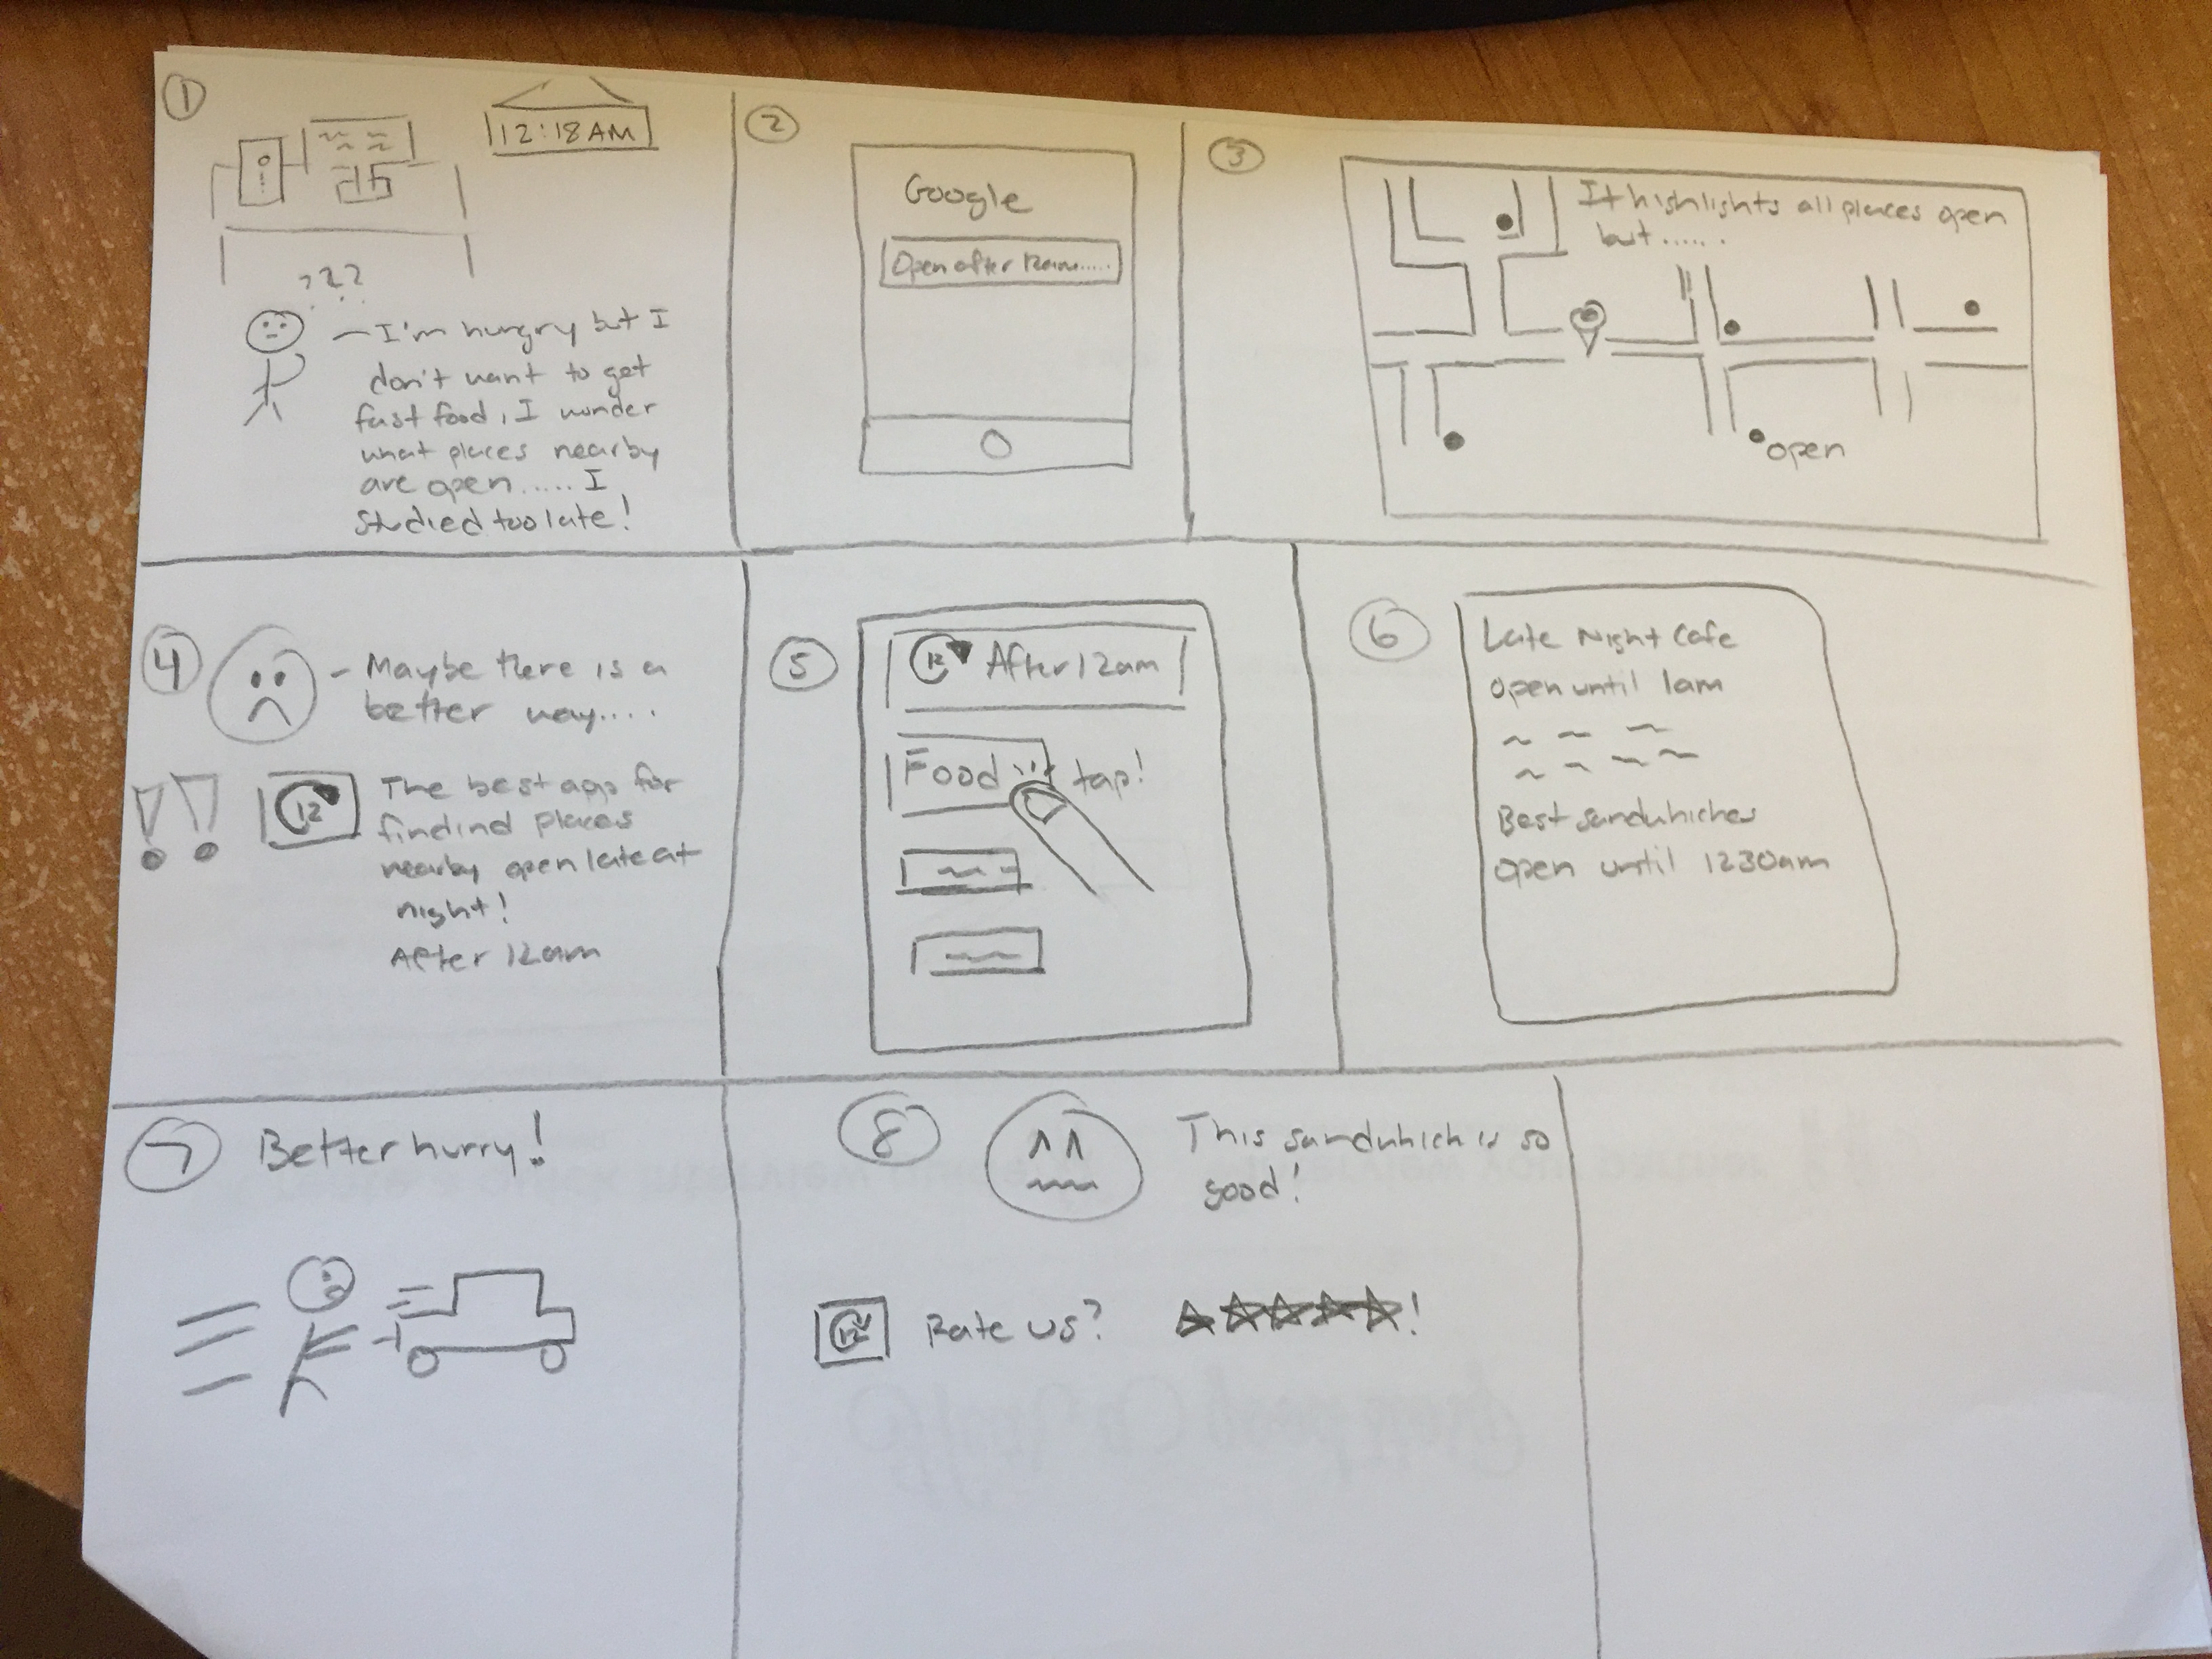 1
12:18AM
???
- I'm hungry but I
don't want to get
fast food, I wonder
what places nearby
are open ..... I
studied too late!
2
Google
Open after 12am.....
3
It highlights all places open
but ......
open
4
- Maybe there is a
better way....
!!
12
The best app for
findind places
nearby open late at
night!
After 12am
5
12 After 12am
Food
tap!
6
Late Night Cafe
open until 1am
Best sandwhiches
open until 1230am
7
Better hurry!
8
This sandwhich is so
good!
12 Rate us? ★★★★★!